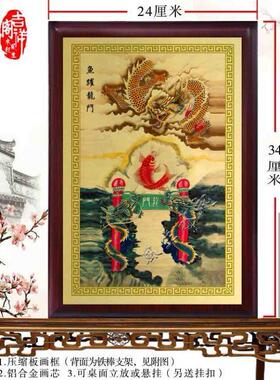 24厘米
吉祥阁
魚躍龍門
34
龍門
1.压缩板画框（背面为铁棒支架，见附图）
2.铝合金画芯 3.可桌面立放或悬挂（另送挂扣）